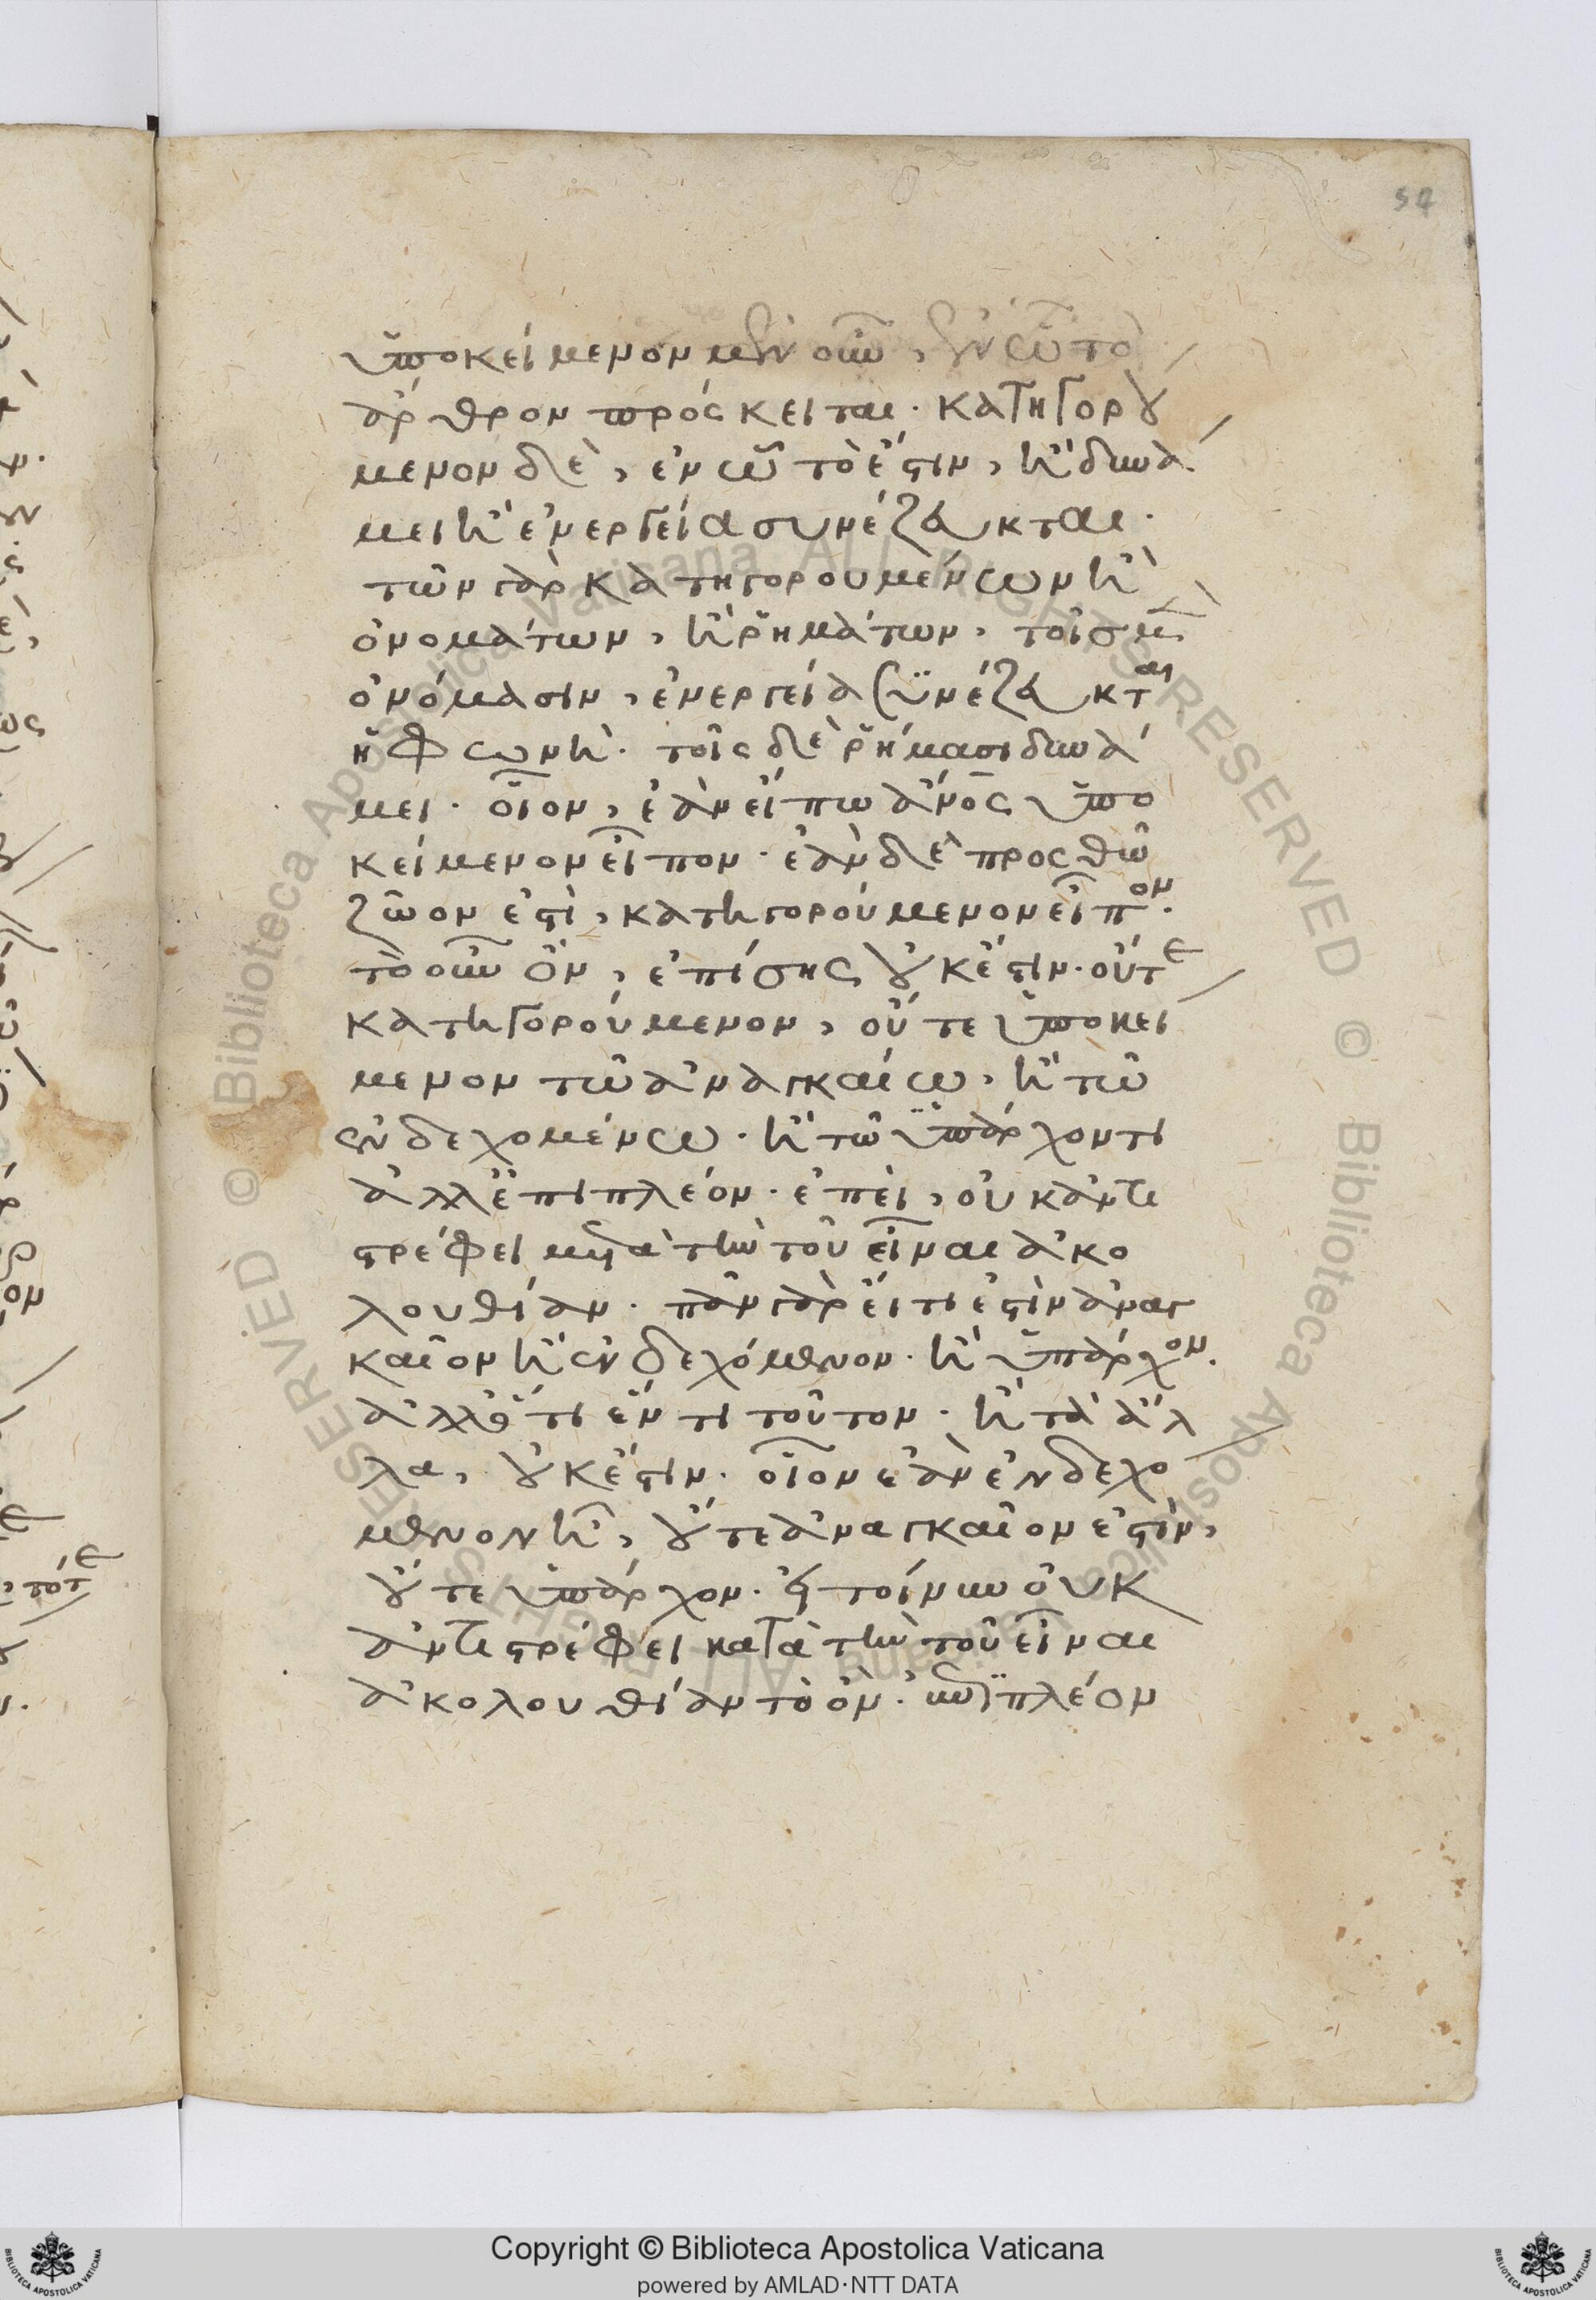 54
ὑποκείμενον μὲν οὖν, ἐν ᾧ τὸ
ἄρθρον πρόσκειται. κατηγορού
μενον δὲ, ἐν ᾧ τὸ ἔστιν, ἢ δυνά
μει ἢ ἐνεργεία συνέζευκται.
τῶν γὰρ κατηγορουμένων ἢ
ὀνομάτων, ἢ ῥημάτων, τοῖς μὲν
ὀνόμασιν, ἐνεργεία συνέζευκται
ἡ φωνὴ. τοῖς δὲ ῥήμασι δυνά
μει. οἷον, ἐὰν εἴπω ἄνος ὑπο
κείμενον εἶπον. ἐὰν δὲ προσθῶ
ζῶον ἐστὶ, κατηγορούμενον εἶπον.
τὸ οὖν ὂν, ἐπίσης οὐκ ἔστιν. οὔτε
κατηγορούμενον, οὔτε ὑποκεί
μενον τῶ ἀναγκαίω, ἢ τῶ
ἐνδεχομένω. ἢ τῶ ὑπάρχοντι
ἀλλ' ἐπιπλέον. ἐπεὶ, οὐκ ἀντι
στρέφει κατὰ τὴν τοῦ εἶναι ἀκο
λουθίαν. πᾶν γὰρ εἴ τι ἐστὶν ἀναγ
καῖον ἢ ἐνδεχόμενον. ἢ ὑπάρχον.
ἀλλ' ὅ τι ἕν τι τούτων. ἢ τὰ ἄλ
λα, οὐκ ἔστιν. οἷον ἐὰν ἐνδεχό
μενον ἦ, οὔτε ἀναγκαῖον ἐστὶν,
οὔτε ὑπάρχον. τοίνυν οὐκ
ἀντιστρέφει κατὰ τὴν τοῦ εἶναι
ἀκολουθίαν τὸ ὂν. πλέον